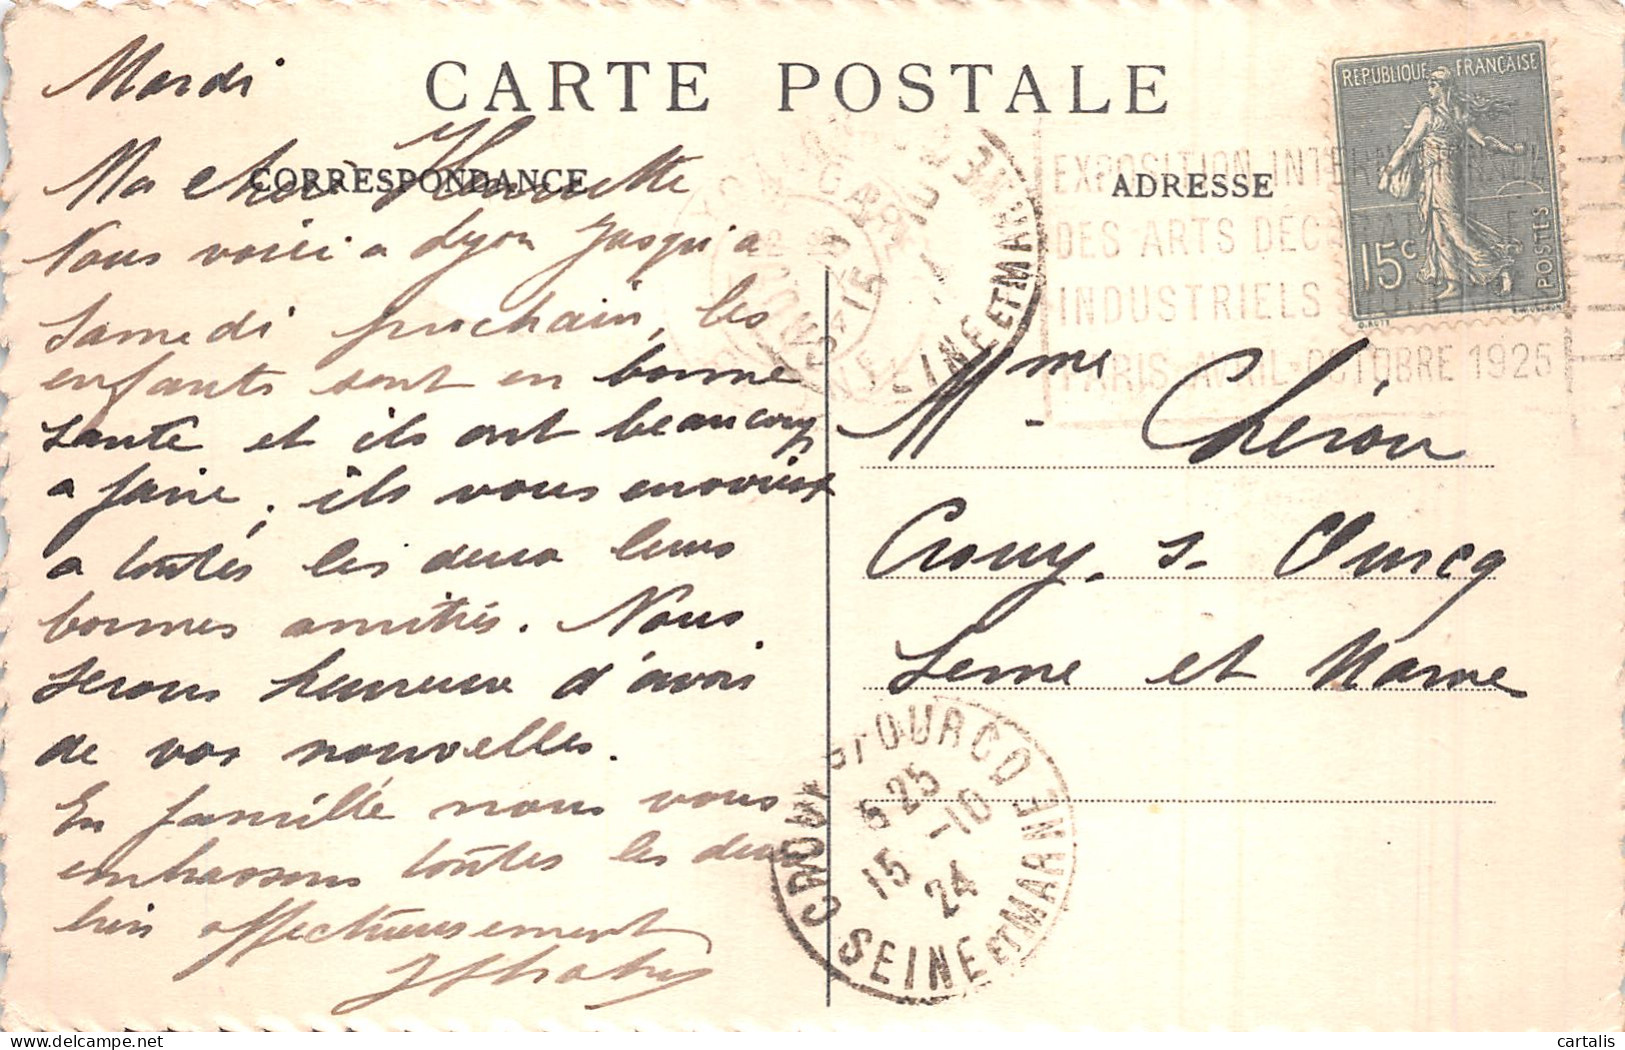 CARTE POSTALE
CORRESPONDANCE
ADRESSE
Mardi
Ma chère Henriette
Nous voici a Lyon jusqu'a
Samedi prochain, les
enfants sont en bonne
sante et ils ont beaucoup
a faire, ils vous envoient
a toutes les deux leurs
bonnes amitiés. Nous
serons heureux d'avoir
de vos nouvelles.
En famille nous vous
embrassons toutes les deux
bien affectueusement
REPUBLIQUE FRANÇAISE
15c
POSTES
EXPOSITION INTERNATIONALE
DES ARTS DECORATIFS ET
INDUSTRIELS MODERNES
PARIS-AVRIL-OCTOBRE 1925
SEINE ET MARNE
Mme Chéron
Crouy. s. Ourcq
Seine et Marne
CROUY S/ OURCQ
5 25
15 -10
24
SEINE ET MARNE
cartalis